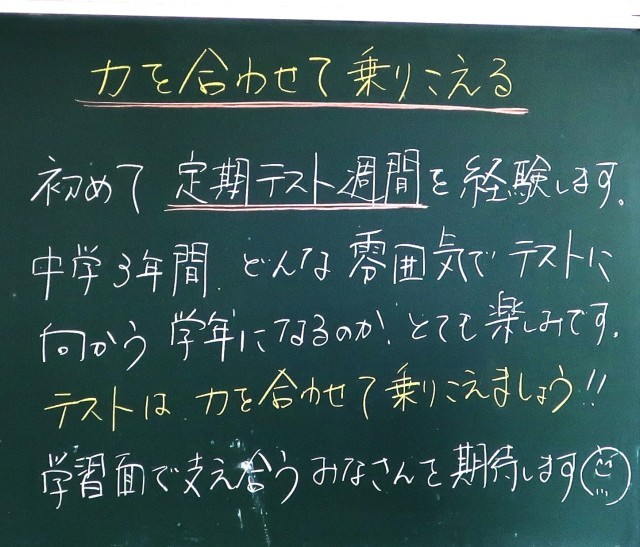 力を合わせて乗りこえる
初めて定期テスト週間を経験します。
中学3年間、どんな雰囲気でテストに
向かう学年になるのか、とても楽しみです。
テストは力を合わせて乗りこえましょう!!
学習面で支え合うみなさんを期待します